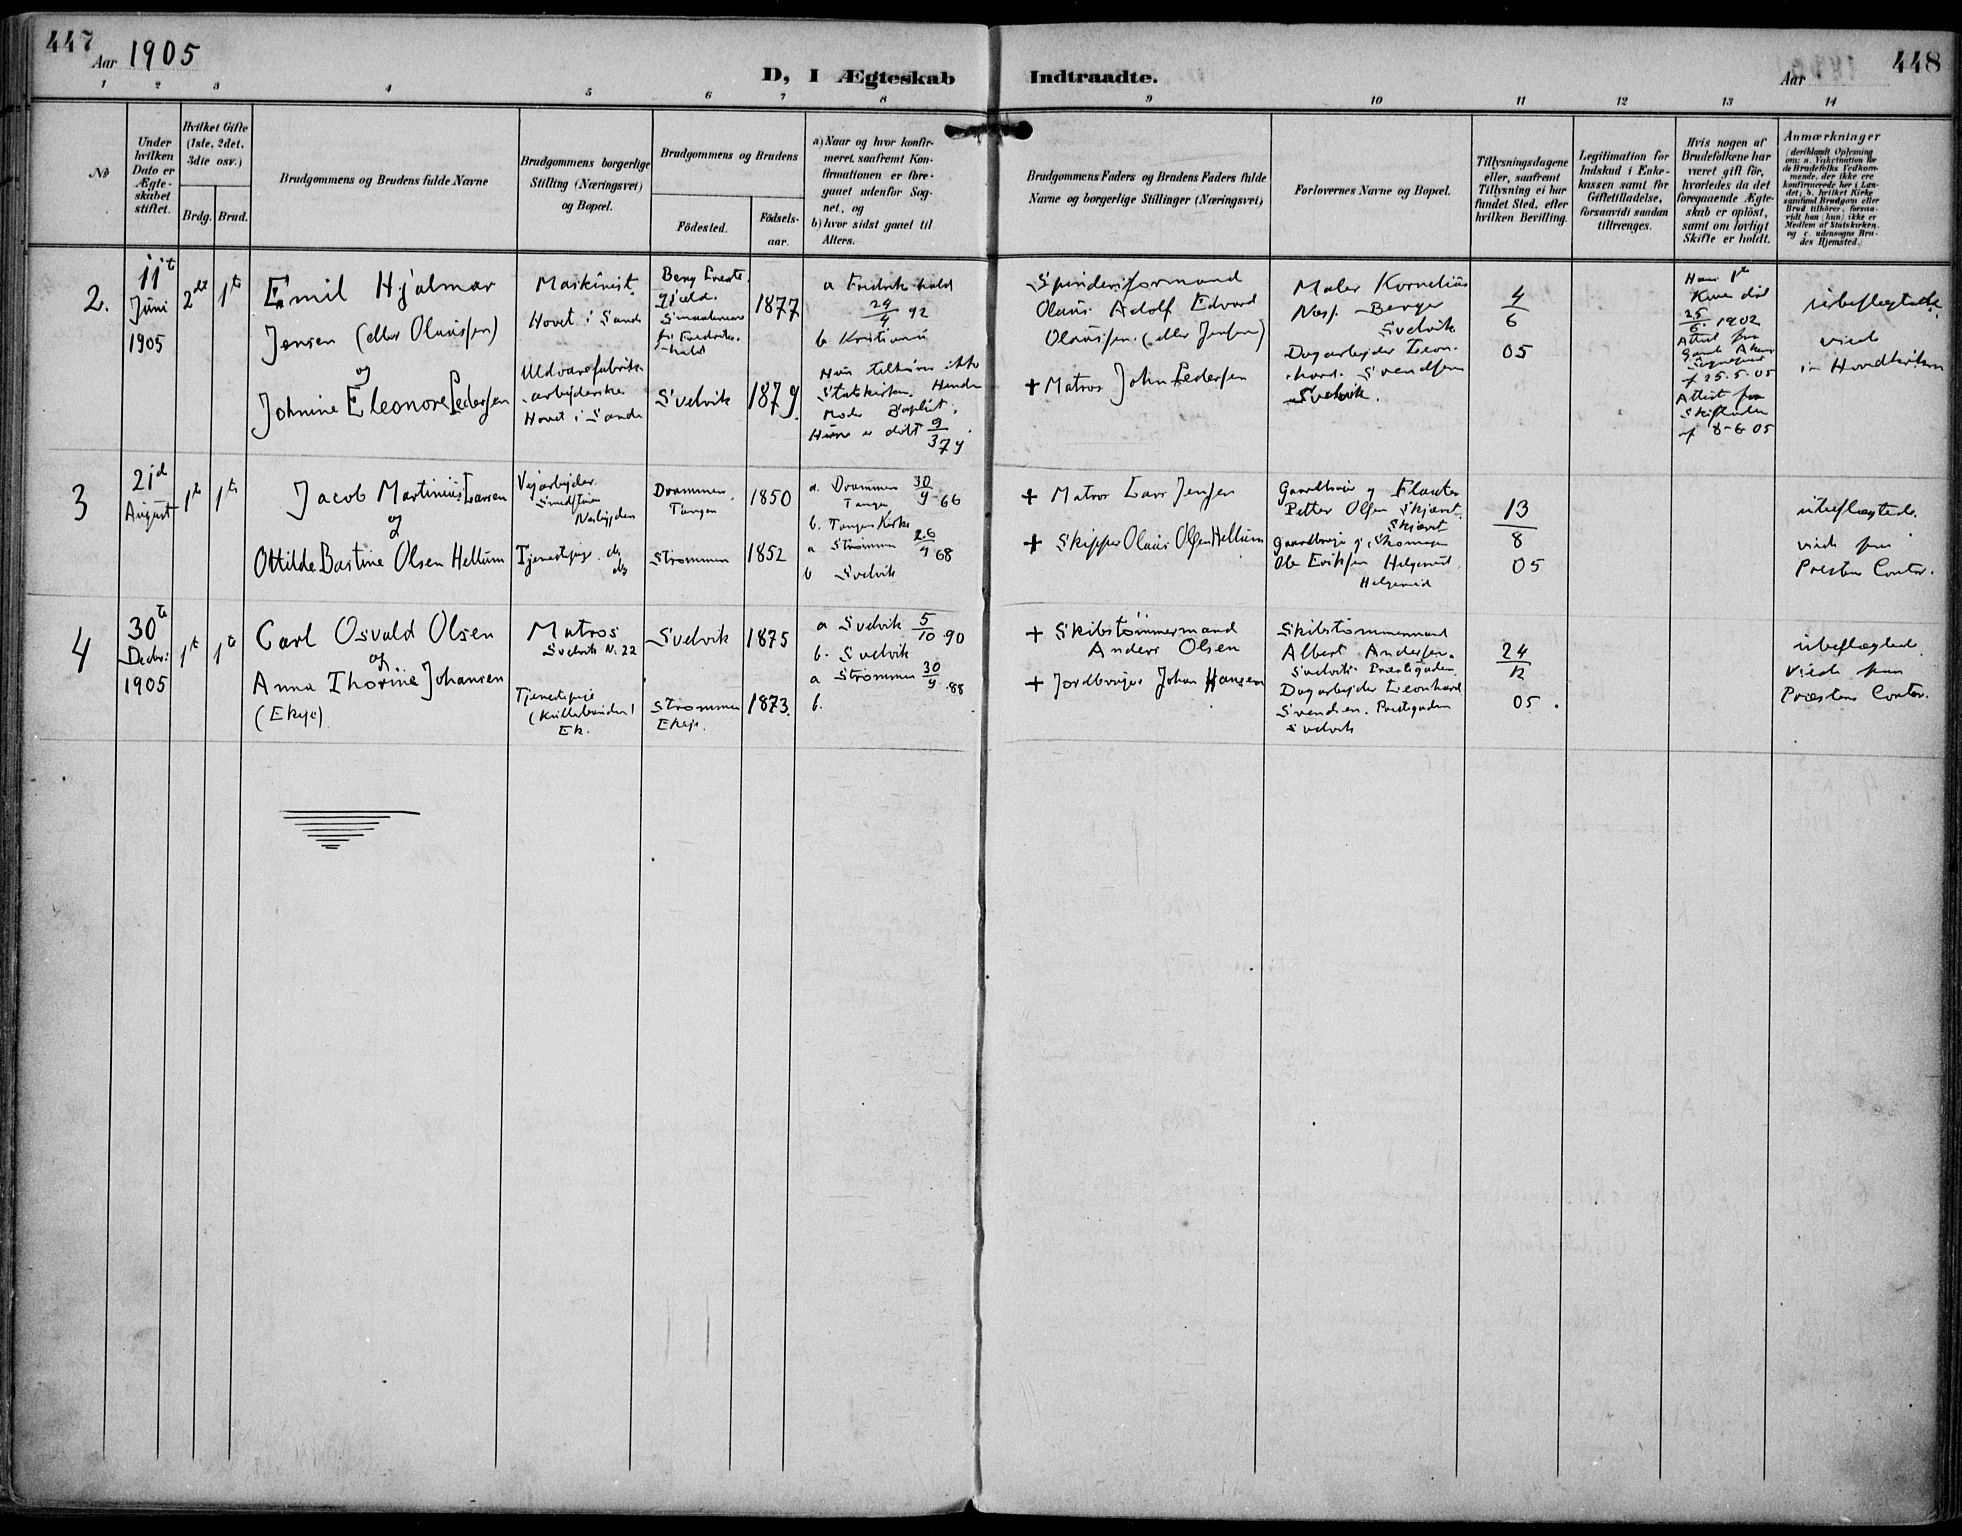 447
Aar 1905
D, I Ægteskab
Indtraadte.
Aar
448
1 2 3 4 5 6 7 8 9 10 11 12 13 14
No
Under
hvilken
Dato er
Ægte-
skabet
stiftet.
Hvilket Gifte
(1ste, 2det,
3die osv.)
Brdg. Brud.
Brudgommens og Brudens fulde Navne
Brudgommens borgerlige
Stilling (Næringsvei)
og Bopæl.
Brudgommens og Brudens
Födested.
Födsels-
aar.
a) Naar og hvor konfir-
meret, saafremt Kon-
firmationen er fore-
gaaet udenfor Sog-
net, og
b) hvor sidst gaaet til
Alters.
Brudgommens Faders og Brudens Faders fulde
Navne og borgerlige Stillinger (Næringsvei)
Forlovernes Navne og Bopæl.
Tillysningsdagene
eller, saafremt
Tillysning ei har
fundet Sted, efter
hvilken Bevilling.
Legitimation for
Indskud i Enke-
kassen samt for
Giftetilladelse,
forsaavidt saadan
tiltrænges.
Hvis nogen af
Brudefolkene har
været gift för,
hvorledes da det
foregaaende Ægte-
skab er oplöst,
samt om lovligt
Skifte er holdt.
Anmærkninger
(deriblandt Oplysning
om: a. Vakcination for
de Brudefolks Vedkom-
mende, der ikke ere
konfirmerede her i Lan-
det; b. hvilket Kirke-
samfund Brudgom eller
Brud tilhörer, forsaa-
vidt han (hun) ikke er
Medlem af Statskirken,
og c. udensogns Bru-
des Hjemsted.)
2.
11t
Juni
1905
2det 1te
Emil Hjalmar
Jensen (eller Olaussen)
og
Johnine Eleonore Pedersen
Maskinist.
Hovet i Sande
Uldvarefabrik-
arbejderske
Hovet i Sande
Berg
Smaalenene
Fredriks-
hald
Svelvik
1877
1879
a Fredrikshald
24/4 92
b Kristiania
Hun tilhører ikke
Statskirken. Hendes
Moder Baptist.
Hun er døbt 9/3 79
Spinderiformand
Olaus Adolf Edvard
Olaussen (eller Jensen)
+ Matros John Pedersen
Maler Kornelius
Berger
Svelvik
Dagarbejder Leon-
hard Svendsen
Svelvik.
4
6
05
Hans 1te
Kone død
25/6 1902
Attest fra
Gamle Akers
Sognepræst
af 25.5.05
Attest fra
Skifteretten
af 8-6 05
ubeslægtede.
viede
i Hovedkirken
3
21d
August
1te 1te
Jacob Martinius Larsen
og
Ottilde Bastine Olsen Hellum
Vejarbejder.
Tjenestepige. ds
ds
Drammen.
Tangen
Strømmen
1850
1852
a. Drammen 30/9 66
Tangen
b. Tangen Kirke
a Strømmen 26/9 68
b Svelvik
+ Matros Lars Jensen
+ Skipper Olaus Olsen Hellum
Petter Olsen Skjævt.
Skjævt
Ole Eriksen
13
8
05
ubeslægtede.
viede paa
Prestens Contor.
4
30te
Decbr:
1905
1te 1te
Carl Osvald Olsen
og
Anna Thorine Johansen
(Ekeje)
Matros
Svelvik N. 22
Tjenestepige
Ek.
Svelvik
Strømmen
Ekeje.
1875
1873.
a Svelvik 5/10 90
b. Svelvik
a Strømmen 30/9 88
b.
+ Skibstømmermand
Anders Olsen
+ Jordbruger Johan Hansen
Skibstømmermand
Albert Andersen.
Svelvik. Præstegaden
Dagarbejder Leonhard
Svendsen. Prestegaden
Svelvik
24
12
05.
ubeslægtede.
Viede paa
Præstens Contor.